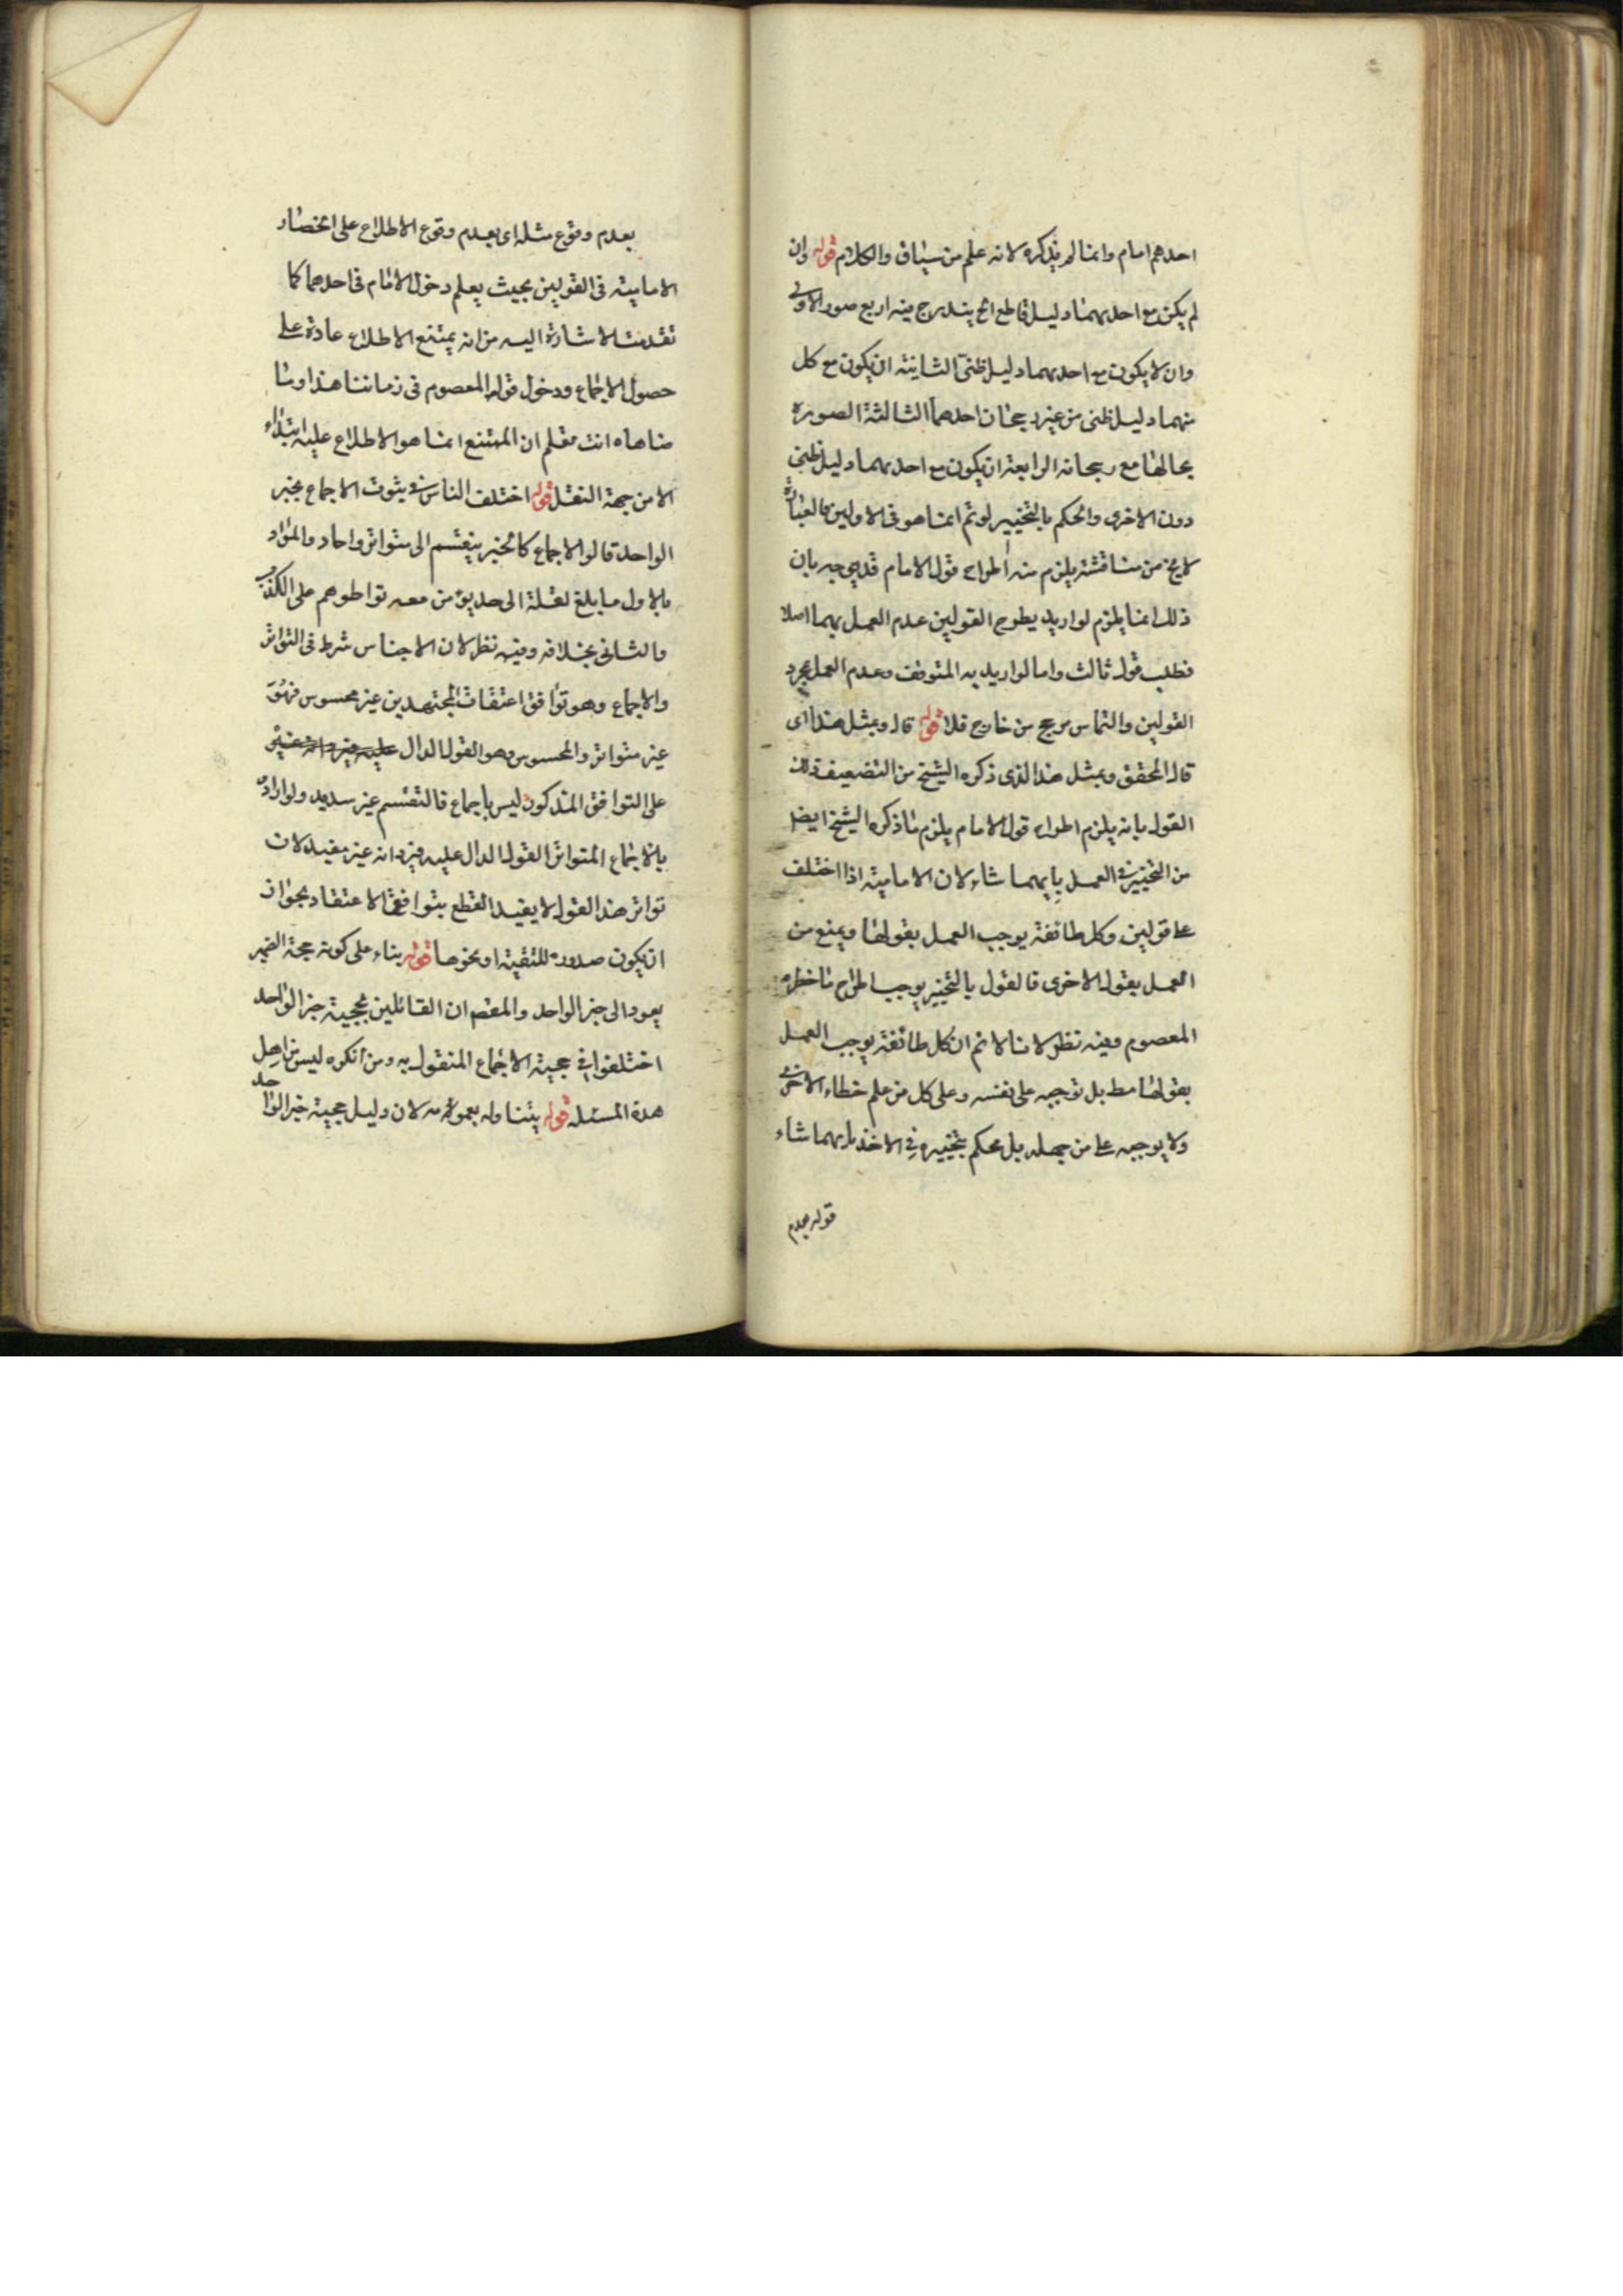 احدهم امام وانما لم يذكره لانه علم من سياق والكلام قوله وان
لم يكن مع احدهما دليل قاطع الخ يندرج فيه اربع صور الاولى
وان لا يكون مع احدهما دليل ظنى الثانية ان يكون مع كل
منهما دليل ظنى من غير رجحان احدهما الثالثة الصورة
بحالها مع رجحانه الرابعة ان يكون مع احدهما دليل ظنى
دون الاخرى والحكم بالتخيير لو تم انما هو فى الاولين فالعبارة
لا يخ من مناقشة يلزم منه اطراح قول الامام قد يوجه بان
ذلك انما يلزم لو اريد بطرح القولين عدم العمل بهما اصلا
فطلب قول ثالث واما لو اريد به التوقف وعدم العمل بمجرد
القولين والتماس مرجح من خارج فلا قوله قال وبمثل هذا اى
قال المحقق وبمثل هذا الذى ذكره الشيخ من التضعيف ذلك
القول بانه يلزم اطراح قول الامام يلزم ما ذكره الشيخ ايضا
من التخيير فى العمل بايهما شاء لان الامامية اذا اختلف
على قولين وكل طائفة يوجب العمل بقولها ويمنع من
العمل بقول الاخرى فالقول بالتخيير يوجب اطراح ما حظره
المعصوم وفيه نظر لانا لا نم ان كل طائفة يوجب العمل
بقولها مط بل توجبه على نفسه وعلى كل من علم خطاء الاخرى
ولا يوجبه على من جهله بل يحكم بتخييره فى الاخذ بايهما شاء
قوله بعدم
بعدم وقوع مثله اى بعدم وقوع الاطلاع على انحصار
الامامية فى القولين بحيث يعلم دخول الامام فى احدهما كما
تقدمت الاشارة اليه من انه يمتنع الاطلاع عادة على
حصول الاجماع ودخول قول المعصوم فى زماننا هذا وما
ضاهاه انت تعلم ان الممتنع انما هو الاطلاع عليه ابتداء
لا من جهة النقل قوله اختلف الناس فى ثبوت الاجماع بخبر
الواحد قالوا الاجماع كالخبر ينقسم الى متواتر واحاد والمراد
بالاول ما بلغ نقلة الى حد يؤمن معه تواطوهم على الكذب
والثانى بخلافه وفيه نظر لان الاحساس شرط فى التواتر
والاجماع وهو توافق اعتقاد المجتهدين غير محسوس فهو
غير متواتر والمحسوس وهو القول الدال
على التوافق المذكور ليس باجماع فالتقسيم غير سديد ولو اراد
بالاجماع المتواتر القول الدال عليه فيرد انه غير مفيد لان
تواتر هذا القول لا يفيد القطع بتوافق الاعتقاد بجواز
ان يكون صدوره للتقية او نحوها قوله بناء على كونه حجة الضمير
يعود الى خبر الواحد والمقصم ان القائلين بحجية خبر الواحد
اختلفوا فى حجية الاجماع المنقول به ومن انكره ليس من اهل
هذه المسئله قوله يتناوله بعمومه لان دليل حجية خبر الواحد